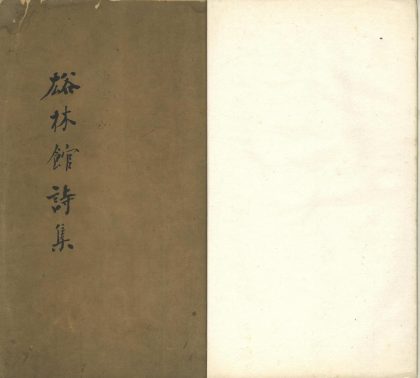 林館詩集